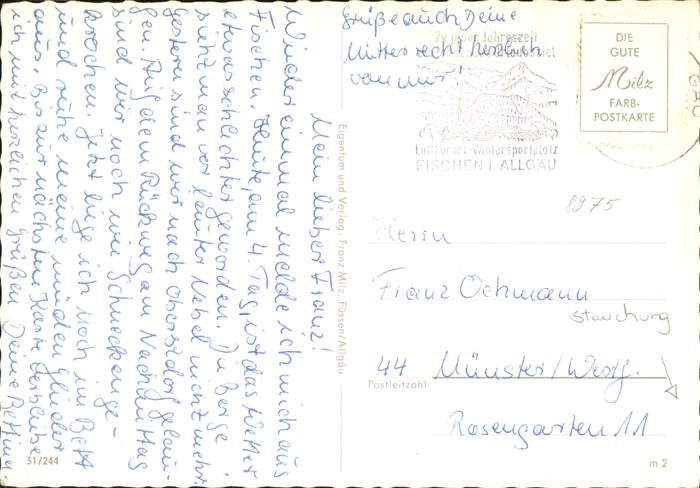 Mein lieber Franz!
Wieder einmal melde ich mich aus
Fischen. Heute, am 4. Tag, ist das Wetter
etwas schlechter geworden. Die Berge
sieht man vor lauter Nebel nicht mehr.
Gestern sind wir nach Oberstdorf gelau-
fen. Auf dem Rückweg am Nachmittag
sind wir noch wie Schnecken ge-
krochen. Jetzt liege ich noch im Bett
und ruhe meine müden Glieder
aus. Bis zur nächsten Karte verbleibe
ich mit herzlichen Grüßen Deine Bettina.
Grüße auch Deine
Mutter recht herzlich
von mir!
Zu jeder Jahreszeit
Luftkurort - Wintersportplatz
FISCHEN i. ALLGÄU
DIE
GUTE
Milz
FARB-
POSTKARTE
Eigentum und Verlag: Franz Milz, Füssen/Allgäu
8975
Herrn
Franz Ochmann
Stauchung
44 Münster/Westf.
Postleitzahl
Rosengarten 11
51/244
m 2